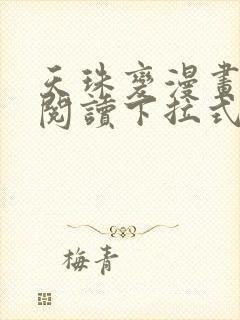 天珠變漫畫
閱讀下拉式
梅青